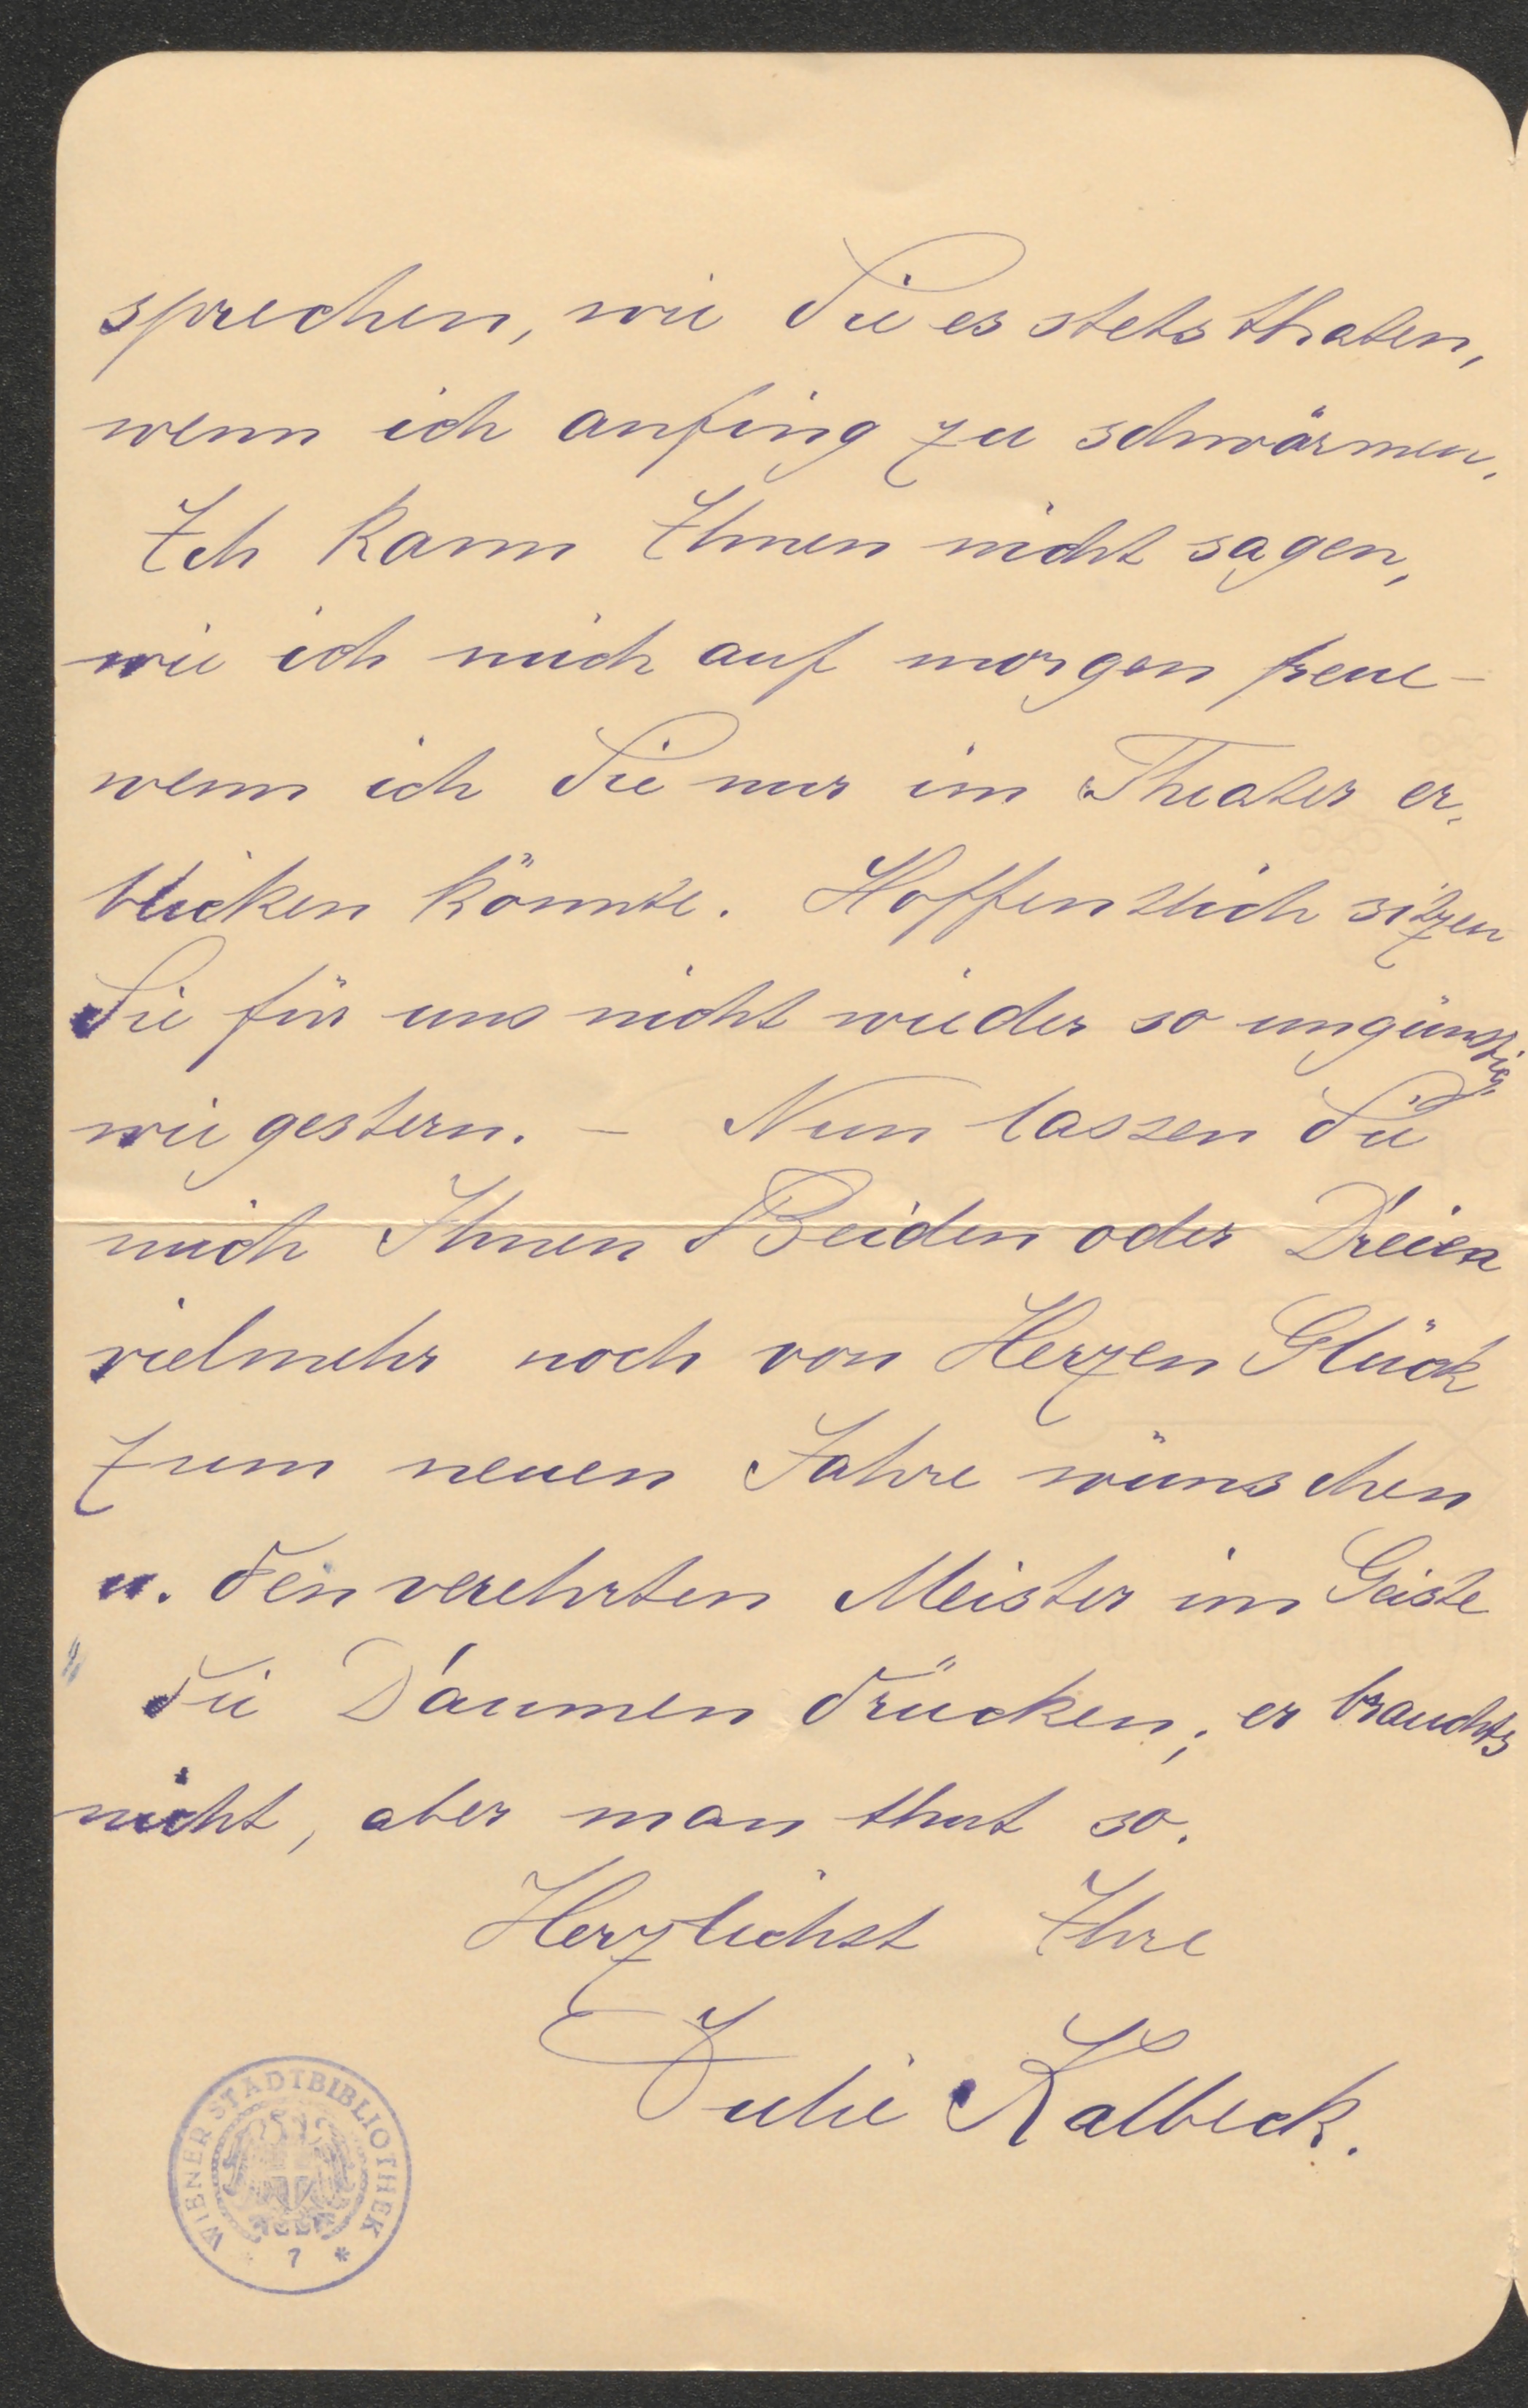 sprechen, wie Sie es stets thaten,
wenn ich anfing zu schwärmen.
Ich kann Ihnen nicht sagen,
wie ich mich auf morgen freue –
wenn ich Sie nur im Theater er-
blicken könnte. Hoffentlich sitzen
Sie für uns nicht wieder so ungünstig
wie gestern. – Nun lassen Sie
mich Ihnen Beiden oder Dreien
vielmehr noch von Herzen Glück
zum neuen Jahre wünschen
u. den verehrten Meister im Geiste
die Daumen drücken; er brauchts
nicht, aber man thut so.
Herzlichst Ihre
Julie Kalbeck.
WIENER STADTBIBLIOTHEK
* 7 *